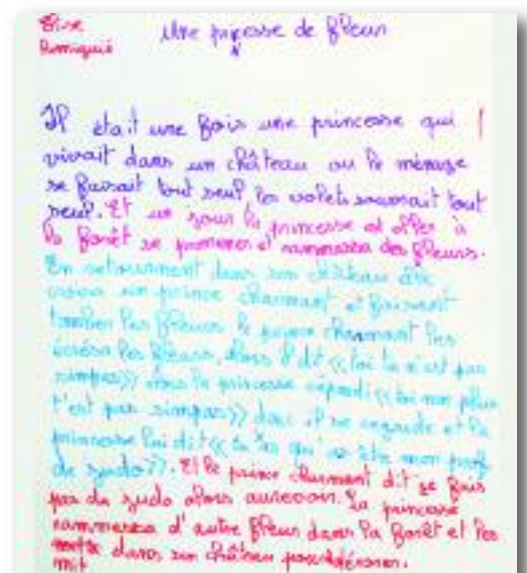 Elise
Romigui
Une princesse de fleur
Il était une fois une princesse qui
vivait dans un château ou le ménage
se faisait tout seul, les volets souvrait tout
seul. Et un jour la princesse et aller à
la forêt se promener et rammassa des fleurs.
En retournent dans son château elle
croisa un prince charmant et faisant
tomber les fleurs le prince charmant les
écrasa les fleurs, alors il dit << toi tu n'est pas
simpas >> alors la princesse repondi << toi non plus
t'est pas simpas >> donc il se regarde et la
princesse lui dit << tu qu'a être mon prof
de judo >>. Et le prince charmant dit je fais
pas du judo alors aurevoir. La princesse
rammassa d'autre fleur dans la forêt et les
mit dans son château pour décorer.